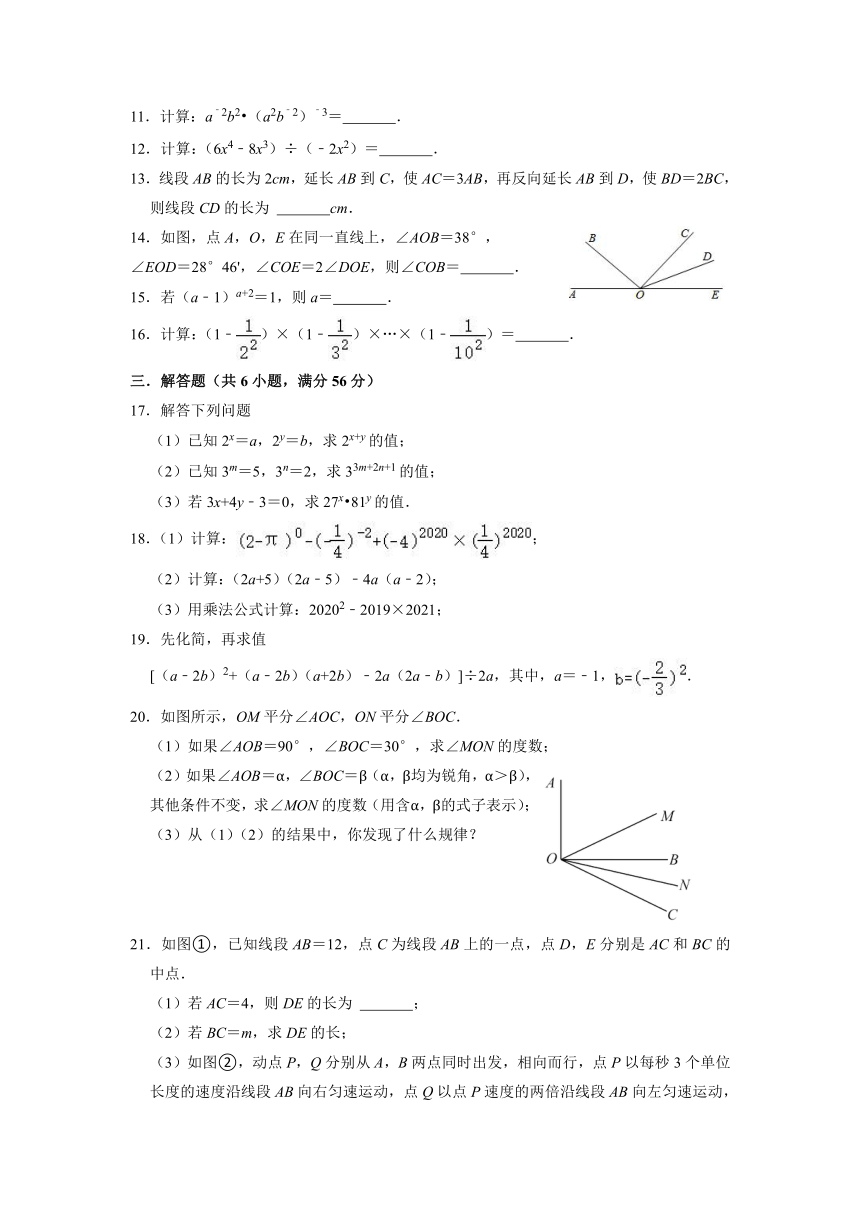 11．计算：a﹣2b2•（a2b﹣2）﹣3＝　　　．
12．计算：（6x4﹣8x3）÷（﹣2x2）＝　　　．
13．线段AB的长为2cm，延长AB到C，使AC＝3AB，再反向延长AB到D，使BD＝2BC，
则线段CD的长为　　　cm．
14．如图，点A，O，E在同一直线上，∠AOB＝38°，
∠EOD＝28°46'，∠COE＝2∠DOE，则∠COB＝　　　．
B C D A O E
15．若（a﹣1）a+2＝1，则a＝　　　．
16．计算：（1﹣1/2²）×（1﹣1/3²）×…×（1﹣1/10²）＝　　　．
三．解答题（共6小题，满分56分）
17．解答下列问题
（1）已知2x＝a，2y＝b，求2x+y的值；
（2）已知3m＝5，3n＝2，求33m+2n+1的值；
（3）若3x+4y﹣3＝0，求27x•81y的值．
18．（1）计算：(2-π)⁰-(-1/4)⁻²+(-4)²⁰²⁰×(1/4)²⁰²⁰；
（2）计算：（2a+5）（2a﹣5）﹣4a（a﹣2）；
（3）用乘法公式计算：20202﹣2019×2021；
19．先化简，再求值
[（a﹣2b）2+（a﹣2b）（a+2b）﹣2a（2a﹣b）]÷2a，其中，a＝﹣1，b=(-2/3)²．
20．如图所示，OM平分∠AOC，ON平分∠BOC．
（1）如果∠AOB＝90°，∠BOC＝30°，求∠MON的度数；
（2）如果∠AOB＝α，∠BOC＝β（α，β均为锐角，α＞β），
其他条件不变，求∠MON的度数（用含α，β的式子表示）；
（3）从（1）（2）的结果中，你发现了什么规律？
A
M
O B
N
C
21．如图①，已知线段AB＝12，点C为线段AB上的一点，点D，E分别是AC和BC的
中点．
（1）若AC＝4，则DE的长为　　　；
（2）若BC＝m，求DE的长；
（3）如图②，动点P，Q分别从A，B两点同时出发，相向而行，点P以每秒3个单位
长度的速度沿线段AB向右匀速运动，点Q以点P速度的两倍沿线段AB向左匀速运动，